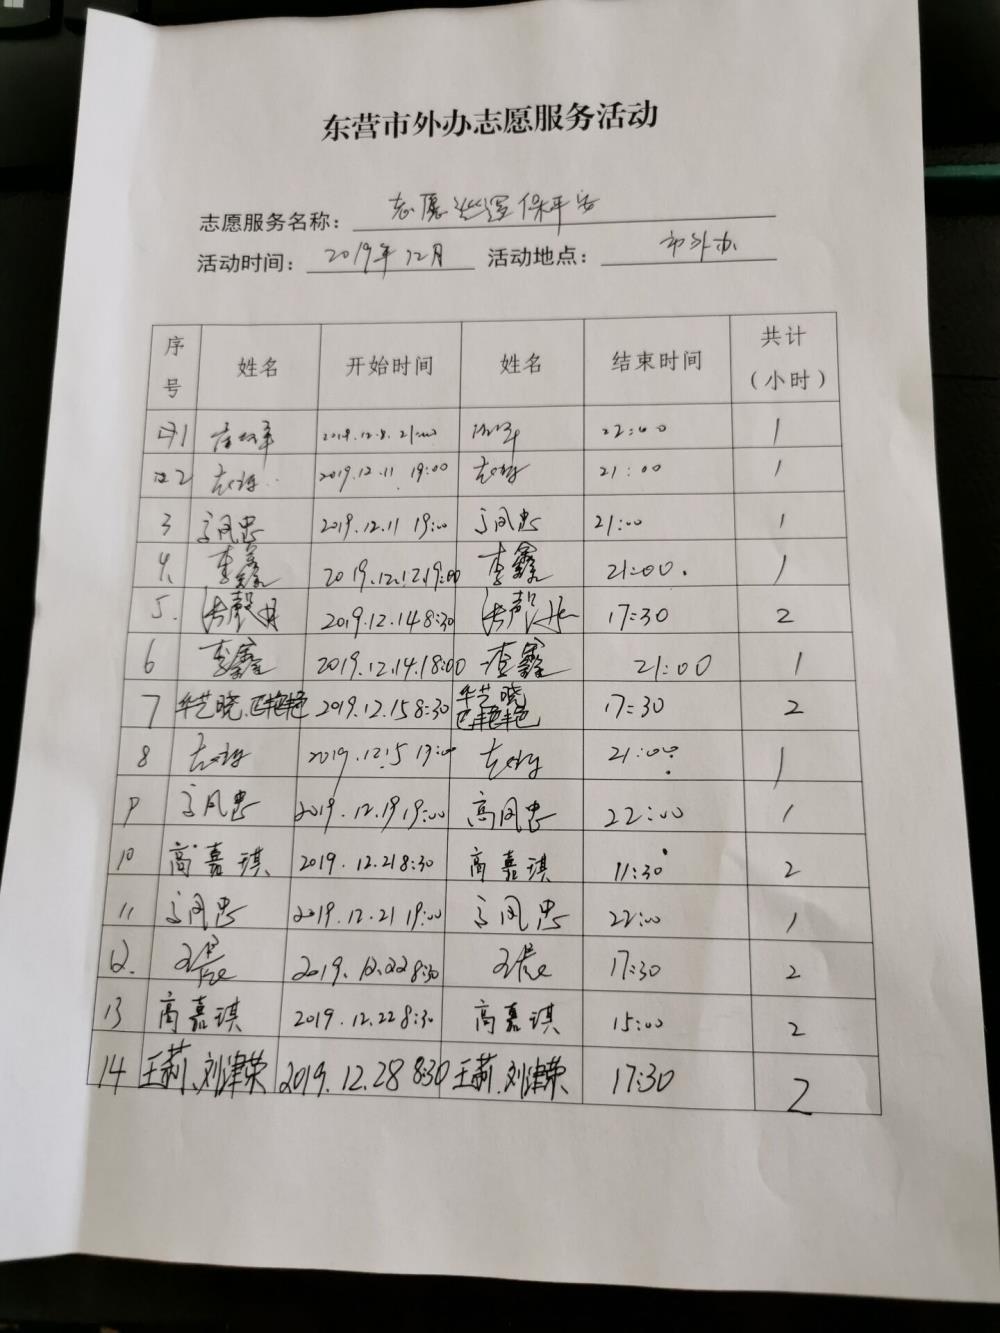 东营市外办志愿服务活动
志愿服务名称： 志愿巡逻保平安
活动时间： 2019年12月 活动地点： 市外办
序号 姓名 开始时间 姓名 结束时间 共计（小时）
1 21:00 22:00 1
2 2019.12.11 19:00 21:00 1
3 高凤忠 2019.12.11 19:00 高凤忠 21:00 1
4. 李鑫 2019.12.12.19:00 李鑫 21:00. 1
5. 2019.12.14 8:30 17:30 2
6 李鑫 2019.12.14.18:00 李鑫 21:00 1
7 华艺晓、巴艳艳 2019.12.15 8:30 华艺晓 巴艳艳 17:30 2
8 21:00 1
9 高凤忠 2019.12.19 19:00 高凤忠 22:00 1
10 高嘉琪 2019.12.21 8:30 高嘉琪 11:30 2
11 高凤忠 2019.12.21 19:00 高凤忠 22:00 1
12. 2019.12.22 8:30 17:30 2
13 高嘉琪 2019.12.22 8:30 高嘉琪 15:00 2
14 王莉、刘津荣 2019.12.28 8:30 王莉、刘津荣 17:30 2